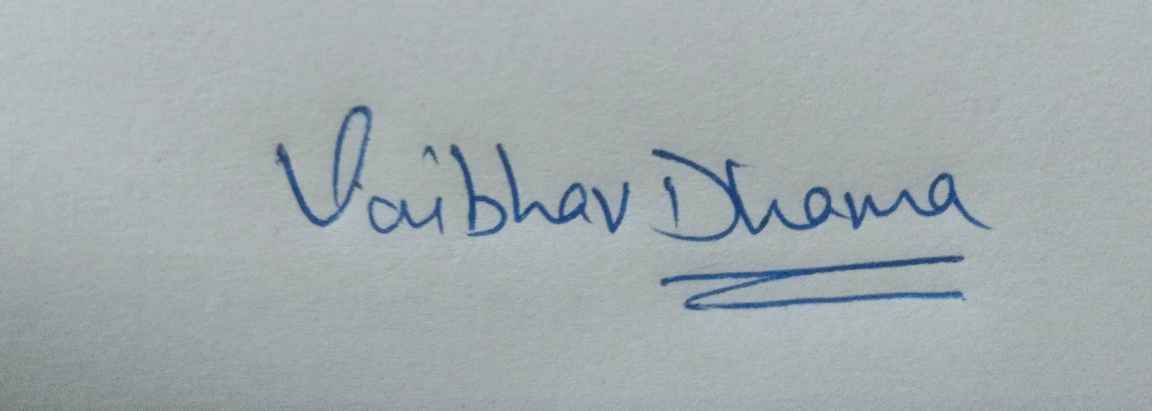 Vaibhav Dhama